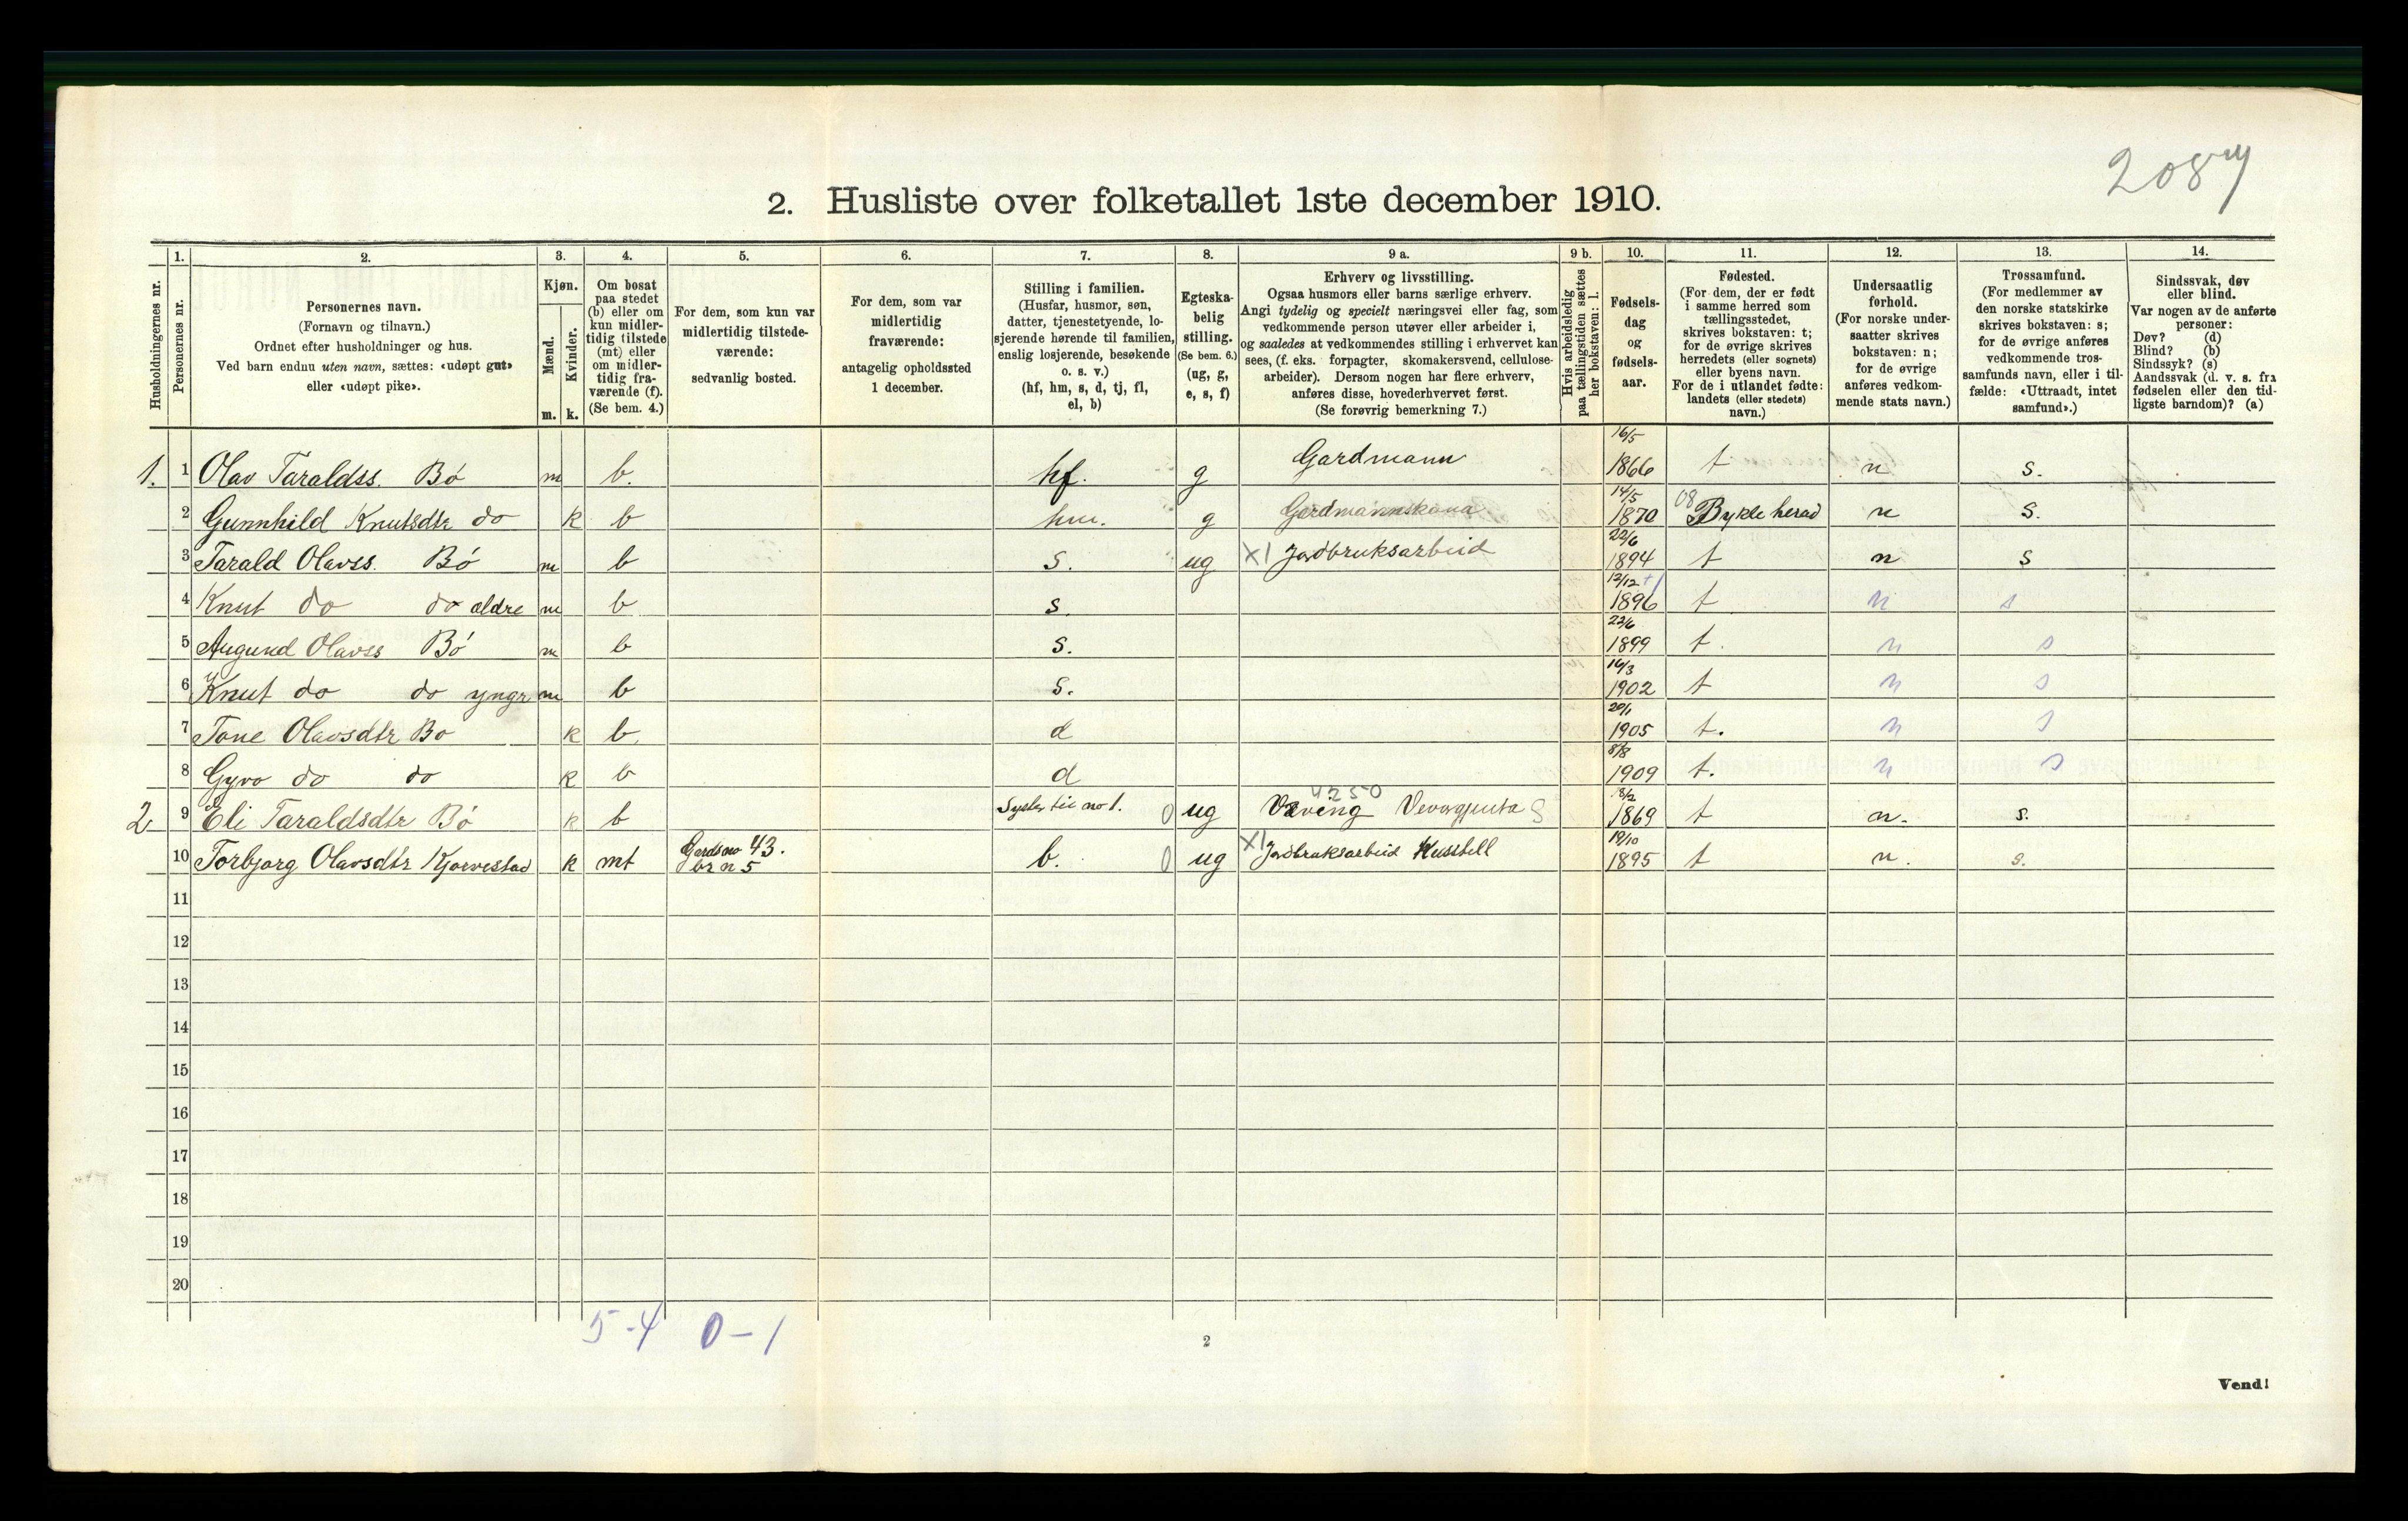 2084
2. Husliste over folketallet 1ste december 1910.
Husholdningernes nr.
1. Personernes nr.
2. Personernes navn. (Fornavn og tilnavn.) Ordnet efter husholdninger og hus. Ved barn endnu uten navn, sættes: «udøpt gut» eller «udøpt pike».
3. Kjøn. Mænd. m. Kvinder. k.
4. Om bosat paa stedet (b) eller om kun midlertidig tilstede (mt) eller om midlertidig fraværende (f). (Se bem. 4.)
5. For dem, som kun var midlertidig tilstedeværende: sedvanlig bosted.
6. For dem, som var midlertidig fraværende: antagelig opholdssted 1 december.
7. Stilling i familien. (Husfar, husmor, søn, datter, tjenestetyende, losjerende hørende til familien, enslig losjerende, besøkende o. s. v.) (hf, hm, s, d, tj, fl, el, b)
8. Egteskabelig stilling. (Se bem. 6.) (ug, g, e, s, f)
9 a. Erhverv og livsstilling. Ogsaa husmors eller barns særlige erhverv. Angi tydelig og specielt næringsvei eller fag, som vedkommende person utøver eller arbeider i, og saaledes at vedkommendes stilling i erhvervet kan sees, (f. eks. forpagter, skomakersvend, cellulosearbeider). Dersom nogen har flere erhverv, anføres disse, hovederhvervet først. (Se forøvrig bemerkning 7.)
9 b. Hvis arbeidsledig paa tællingstiden sættes her bokstaven: l.
10. Fødselsdag og fødselsaar.
11. Fødested. (For dem, der er født i samme herred som tællingsstedet, skrives bokstaven: t; for de øvrige skrives herredets (eller sognets) eller byens navn. For de i utlandet fødte: landets (eller stedets) navn.)
12. Undersaatlig forhold. (For norske undersaatter skrives bokstaven: n; for de øvrige anføres vedkommende stats navn.)
13. Trossamfund. (For medlemmer av den norske statskirke skrives bokstaven: s; for de øvrige anføres vedkommende trossamfunds navn, eller i tilfælde: «Uttraadt, intet samfund».)
14. Sindssvak, døv eller blind. Var nogen av de anførte personer: Døv? (d) Blind? (b) Sindssyk? (s) Aandssvak (d. v. s. fra fødselen eller den tidligste barndom)? (a)
1. 1 Olav Taraldss. Bó m b. hf. g Gardmann 16/5 1866 t n s.
2 Gunnhild Knutsdtr do k b hm. g Gardmannskona 14/5 1870 08 Bykle herad n s.
3 Tarald Olavss. Bó m b s. ug X1 Jordbruksarbeid 22/6 1894 t n s
4 Knut do do ældre m b s. 12/12 1896 t n s
5 Augund Olavss Bó m b s. 23/6 1899 t. n s
6 Knut do do yngr m b s. 16/3 1902 t n s
7 Tone Olavsdtr Bo k b. d 20/1 1905 t. n s
8 Gyro do do k b d 8/8 1909 t. n s
2 9 Eli Taraldsdtr Bó k b Syster til no 1. 0 ug 4250 Veving Vevargjenta S 18/2 1869 t n. s.
10 Torbjorg Olavsdtr Kjorvestad k mt Gardsno 43. br n 5 b. 0 ug X1 Jordbruksarbeid Husstell 19/10 1895 t n. s.
11
12
13
14
15
16
17
18
19
20
5-4 0-1
2
Vend!